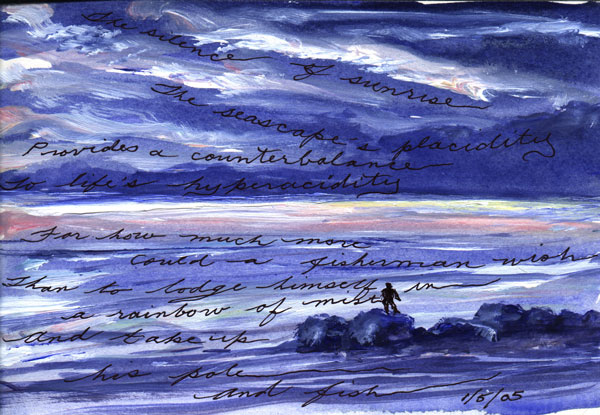 The silence of sunrise
The seascape's placidity
Provides a counterbalance
To life's hyperacidity
For how much more
could a fisherman wish
Than to lodge himself in
a rainbow of mist
And take up
his pole
and fish
1/6/05